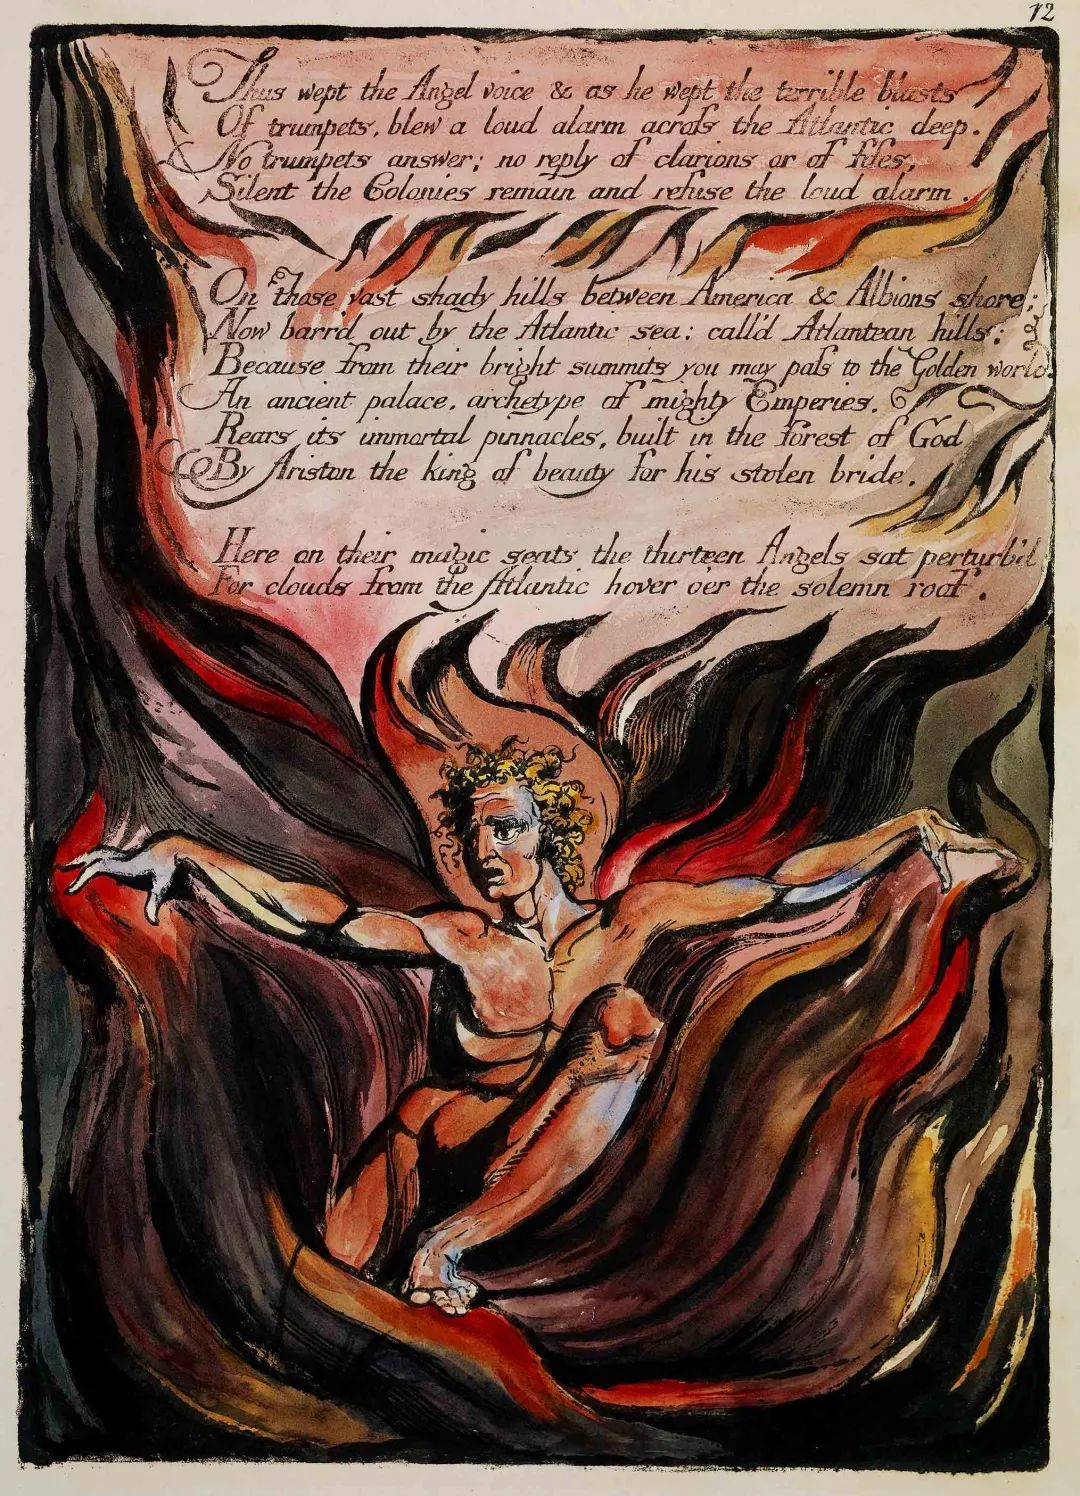 12
Thus wept the Angel voice & as he wept the terrible blasts
Of trumpets, blew a loud alarm across the Atlantic deep.
No trumpets answer; no reply of clarions or of fifes,
Silent the Colonies remain and refuse the loud alarm.
On those vast shady hills between America & Albions shore;
Now barr'd out by the Atlantic sea: call'd Atlantean hills:
Because from their bright summits you may pass to the Golden world
An ancient palace, archetype of mighty Emperies,
Rears its immortal pinnacles, built in the forest of God
By Ariston the king of beauty for his stolen bride.
Here on their magic seats the thirteen Angels sat perturb'd
For clouds from the Atlantic hover o'er the solemn roof.